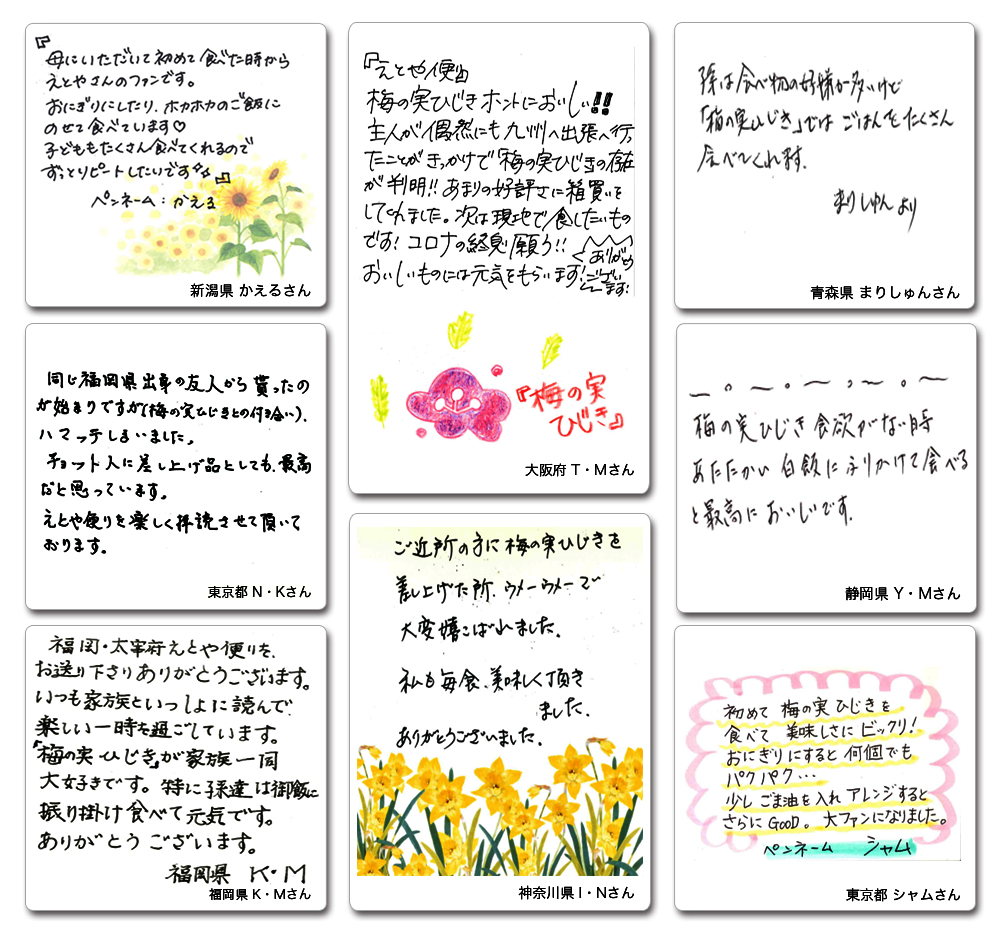 『母にいただいて初めて食べた時から
えとやさんのファンです。
おにぎりにしたり、ホカホカのご飯に
のせて食べています♡
子どももたくさん食べてくれるので
ずっとリピートしたいです』
ペンネーム：かえる
新潟県 かえるさん
『えとや便』
梅の実ひじきホントにおいしい!!
主人が偶然にも九州へ出張へ行っ
たことがきっかけで「梅の実ひじき」の存在
が判明!! あまりの好評さに箱買いを
してくれました。次は現地で食したいもの
です! コロナの終息願う!!
おいしいものには元気をもらいます!
ありがとう
ござい
ます!
『梅の実
ひじき』
大阪府 T・Mさん
孫は食べ物の好嫌が多いけど
「梅の実ひじき」では ごはんをたくさん
食べてくれます.
まりしゅんより
青森県 まりしゅんさん
同じ福岡県出身の友人から貰ったの
が始まりですが(梅の実ひじきとの付き合い)、
ハマッテしまいました。
チョット人に差し上げ品としても、最高
だと思っています。
えとや便りを楽しく拝読させて頂いて
おります。
東京都 N・Kさん
梅の実ひじき食欲がない時
あたたかい白飯にふりかけて食べる
と最高においしいです.
静岡県 Y・Mさん
ご近所の方に梅の実ひじきを
差し上げた所、ウメーウメーで
大変嬉こばれました.
私も毎食、美味しく頂き
ました.
ありがとうございました.
神奈川県 I・Nさん
福岡・太宰府えとや便りを、
お送り下さりありがとうございます。
いつも家族といっしょに読んで、
楽しい一時を過ごしています。
『梅の実ひじき』が家族一同
大好きです。特に孫達は御飯に
振り掛け食べて元気です。
ありがとうございます。
福岡県 K・M
福岡県 K・Mさん
初めて 梅の実ひじきを
食べて 美味しさにビックリ!
おにぎりにすると何個でも
パクパク…
少しごま油を入れアレンジすると
さらにGOOD。大ファンになりました。
ペンネーム シャム
東京都 シャムさん